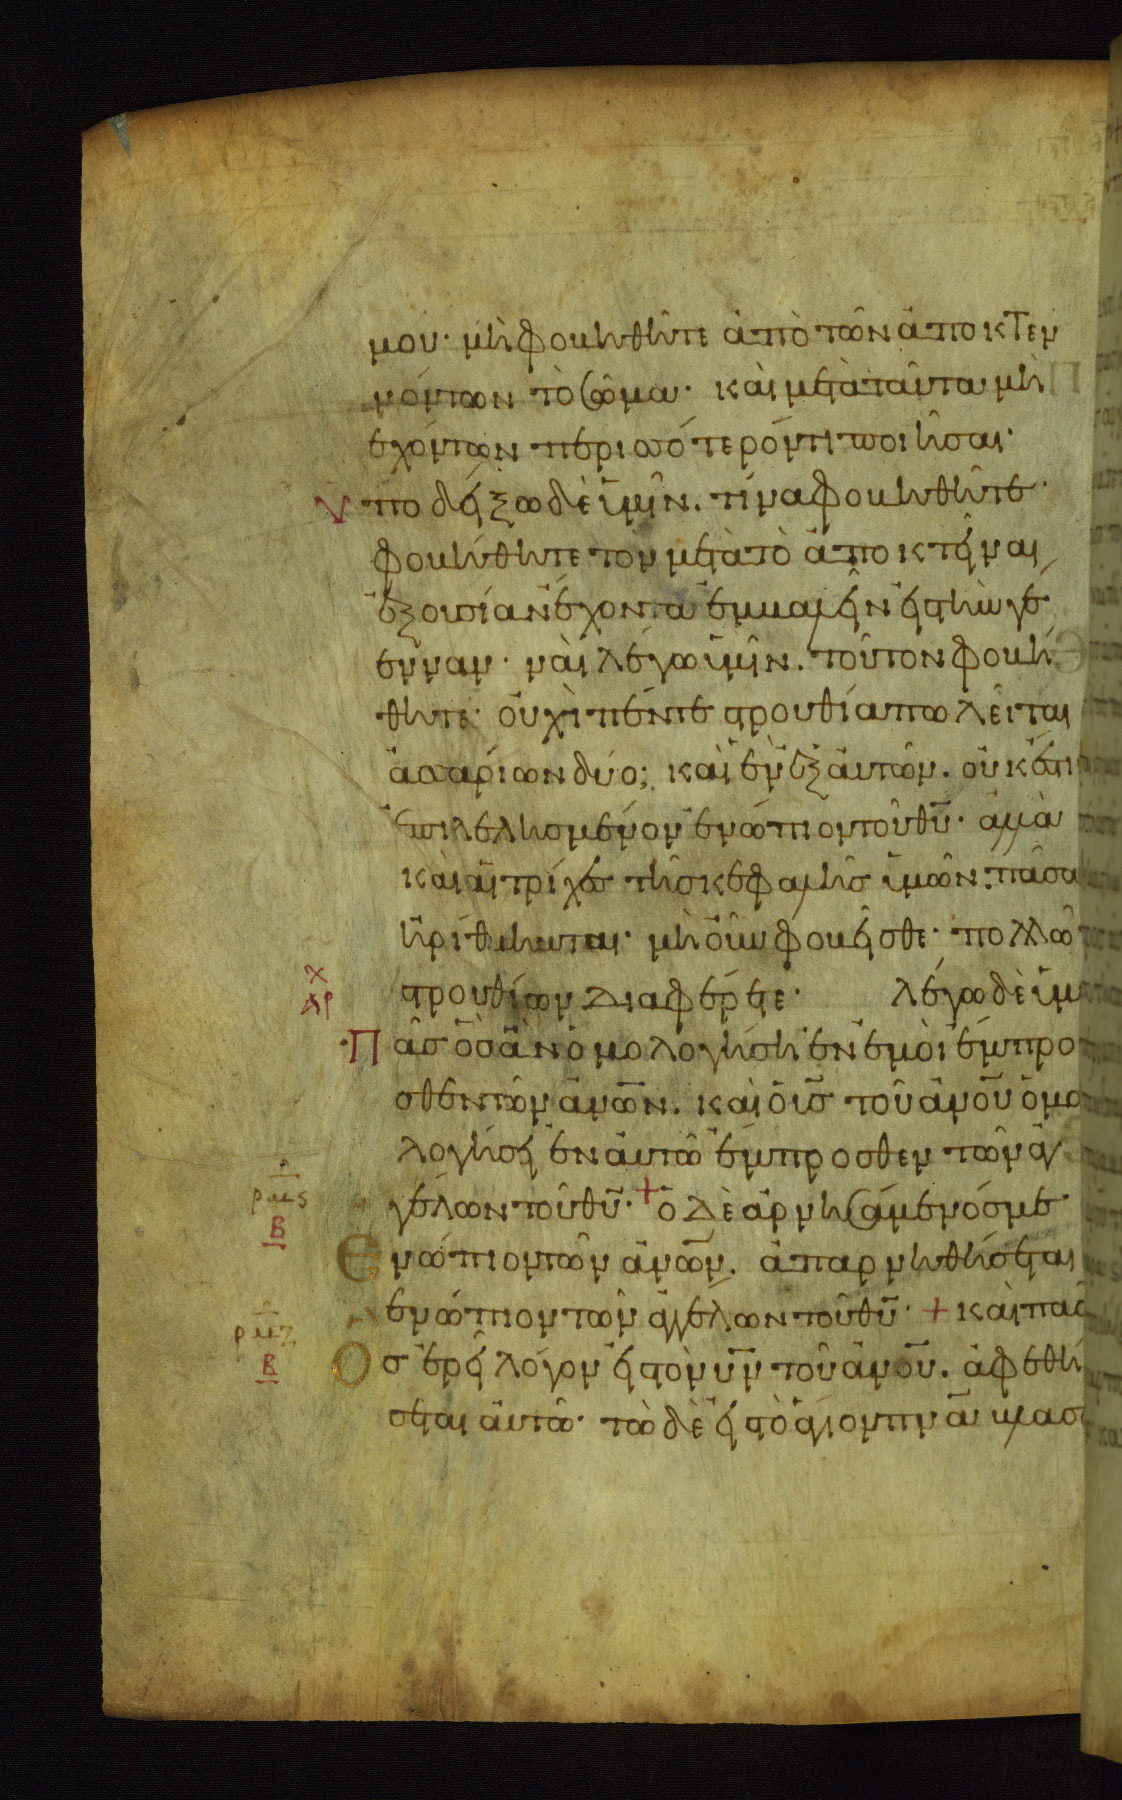 μου· μὴ φοβηθῆτε ἀπὸ τῶν ἀποκτεν
νόντων τὸ σῶμα· καὶ μετὰ ταῦτα μὴ
ἐχόντων περισσότερόν τι ποιῆσαι·
ὑποδείξω δὲ ὑμῖν. τίνα φοβηθῆτε·
φοβήθητε τὸν μετὰ τὸ ἀποκτεῖναι
ἐξουσίαν ἔχοντα ἐμβαλεῖν εἰς τὴν γέ
ενναν· ναὶ λέγω ὑμῖν. τοῦτον φοβή
θητε· οὐχὶ πέντε στρουθία πωλεῖται
ἀσσαρίων δύο; καὶ ἓν ἐξ αὐτῶν. οὐκ ἔστιν
ἐπιλελησμένον ἐνώπιον τοῦ θῡ· ἀλλὰ
καὶ αἱ τρίχες τῆς κεφαλῆς ὑμῶν. πᾶσαι
ἠρίθμηνται· μὴ οὖν φοβεῖσθε· πολλῶν
στρουθίων διαφέρετε· λέγω δὲ ὑμῖν
χ
αρ
Πᾶς ὃς ἂν ὁμολογήσῃ ἐν ἐμοὶ ἔμπρο
σθεν τῶν ἀνων. καὶ ὁ υἱς τοῦ ἀνου ὁμο
λογήσει ἐν αὐτῶ ἔμπροσθεν τῶν ἀγ
ρμς
Β
γέλων τοῦ θῡ· + ὁ δὲ ἀρνησάμενός με
Ενώπιον τῶν ἀνων. ἀπαρνηθήσεται
ἐνώπιον τῶν ἀγγέλων τοῦ θῡ· + καὶ πᾶς
ρμζ
Β
Ος ἐρεῖ λόγον εἰς τὸν υν τοῦ ἀνου. ἀφεθή
σεται αὐτῶ· τῶ δὲ εἰς τὸ ἅγιον πνα βλασ